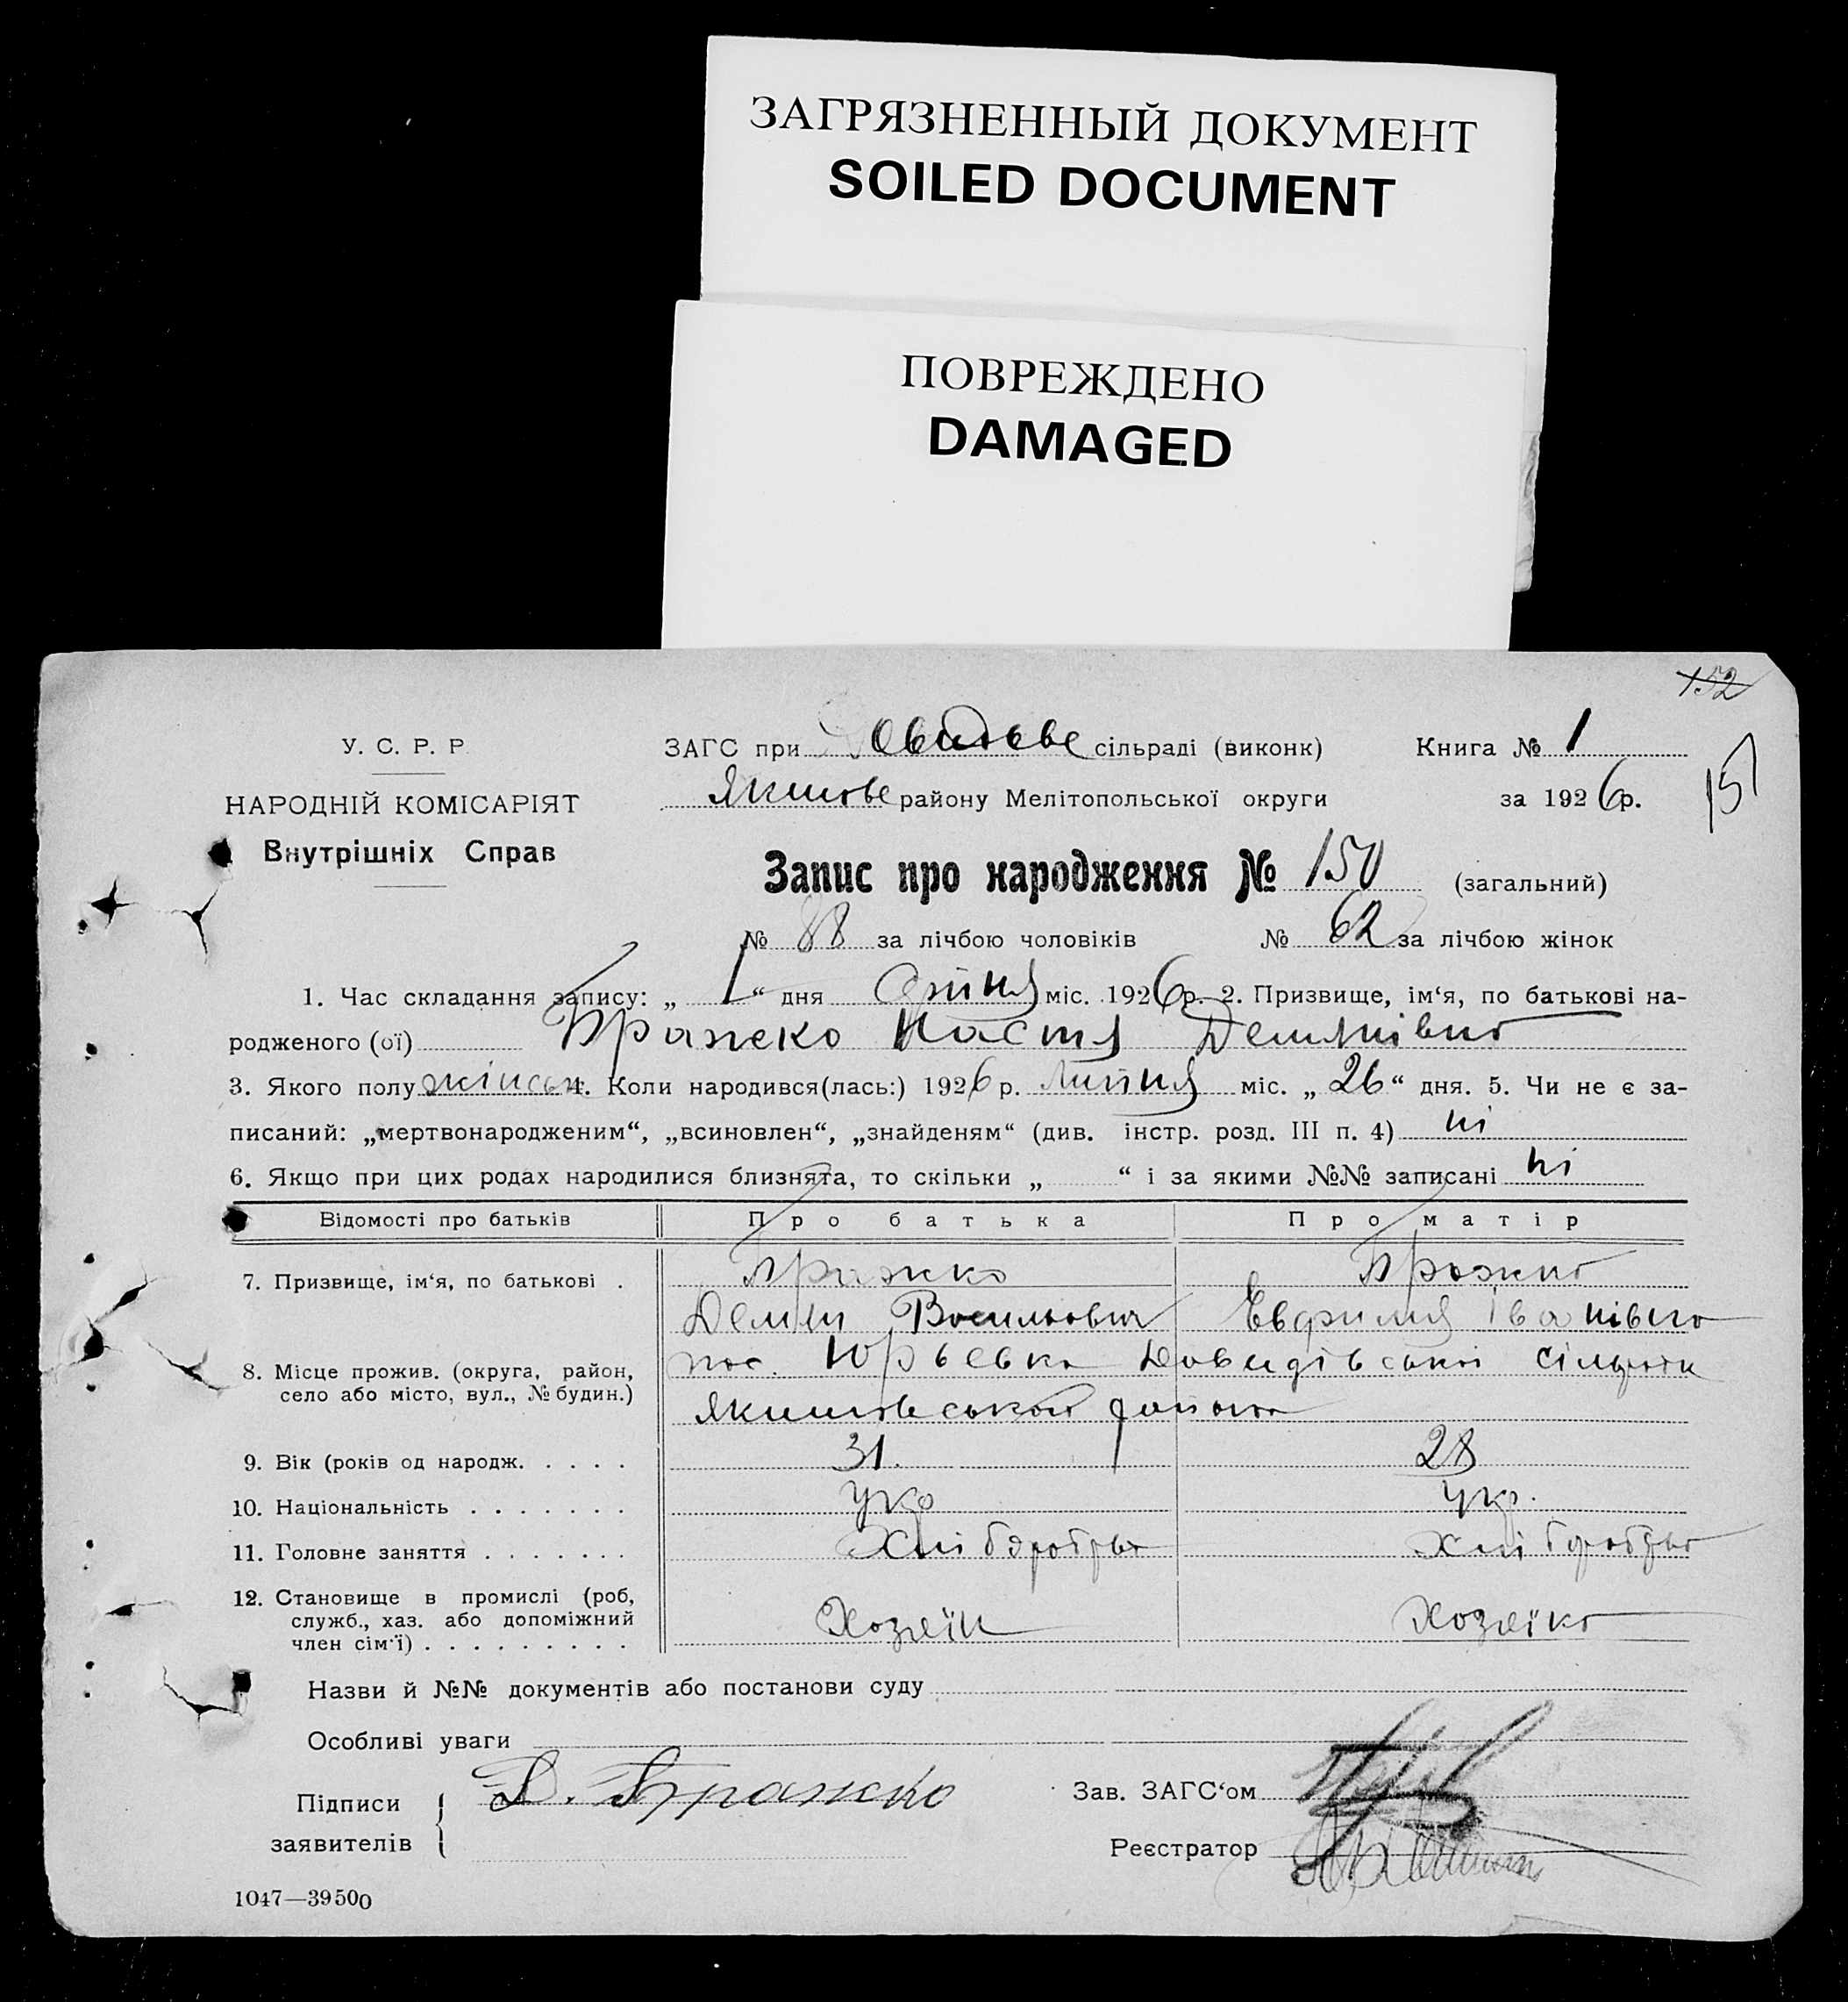 ЗАГРЯЗНЕННЫЙ ДОКУМЕНТ
SOILED DOCUMENT
ПОВРЕЖДЕНО
DAMAGED
152
У. С. Р. Р.
НАРОДНІЙ КОМІСАРІЯТ
Внутрішніх Справ
ЗАГС при сільраді (виконк) Книга № 1
району Мелітопольської округи за 1926 р.
151
Запис про народження № 150 (загальний)
№ 88 за лічбою чоловіків № 62 за лічбою жінок
1. Час складання запису: „ 1 “ дня міс. 1926 р. 2. Призвище, ім‘я, по батькові на-
родженого (ої) Бражко Настя Демянівна
3. Якого полу жіноч 4. Коли народився(лась:) 1926 р. липня міс. „ 26 “ дня. 5. Чи не є за-
писаний: „мертвонародженим“, „всиновлен“, „знайденям“ (див. інстр. розд. III п. 4) ні
6. Якщо при цих родах народилися близнята, то скільки „ “ і за якими №№ записані ні
Відомості про батьків Про батька Про матір
7. Призвище, ім‘я, по батькові . Бражко Бражко
Демян Васильович Евфимия Іванівна
8. Місце прожив. (округа, район,
село або місто, вул., № будин.)
пос. Юрьевка Давидівської сільради
району
9. Вік (років од народж. . . . . 31. 28
10. Національність . . . . . . . укр укр.
11. Головне заняття . . . . . . . Хліборобство хліборобство
12. Становище в промислі (роб,
служб., хаз. або допоміжний
член сім‘ї) . . . . . . . . .
Хозяїн Хозяїка
Назви й №№ документів або постанови суду
Особливі уваги
Підписи
заявителів
Д. Бражко
Зав. ЗАГС‘ом
Реєстратор
1047—39500